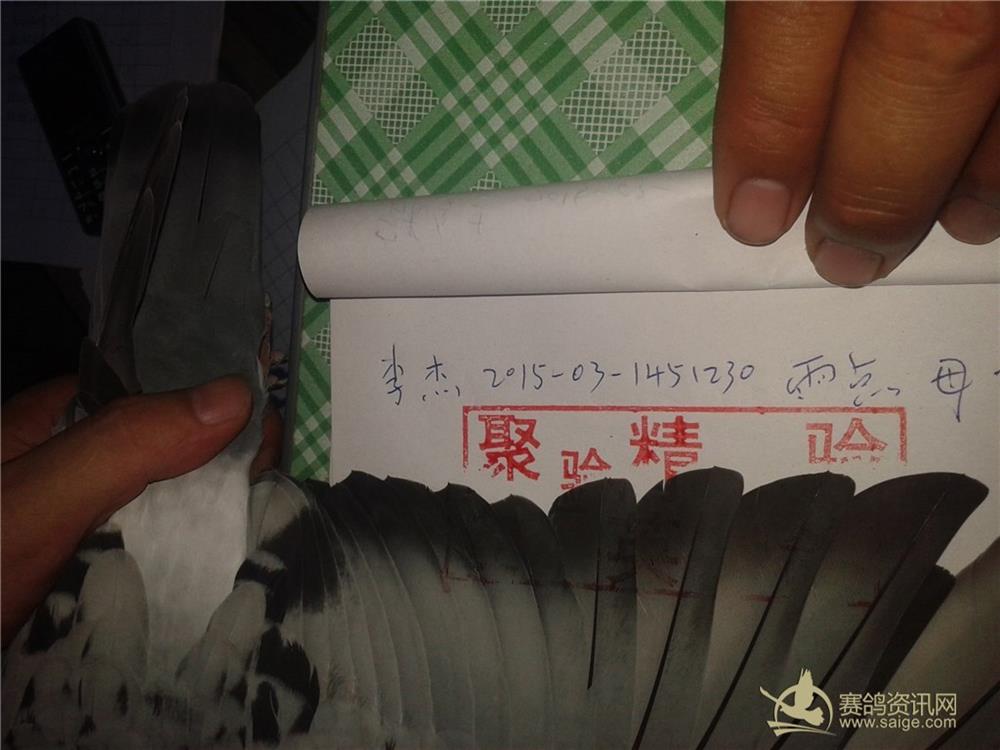 李杰 2015-03-1451230 雨点 母
聚 验 精 验
赛鸽资讯网
www.saige.com